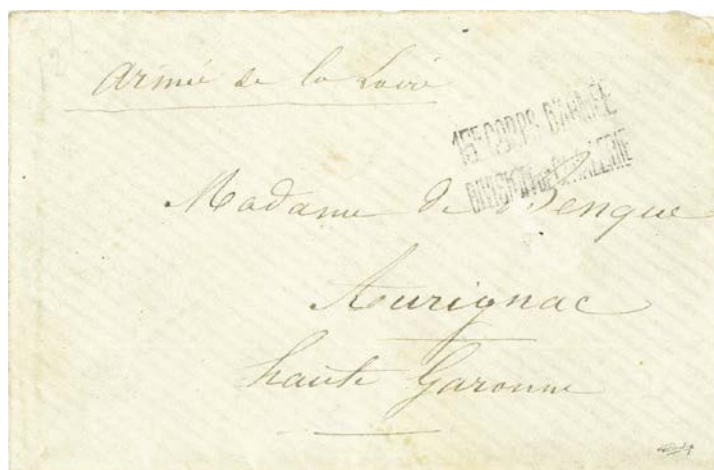 Armée de la Loire
15E CORPS D'ARMÉE
DIVISION DE CAVALERIE
Madame de Benque
Aurignac
haute Garonne